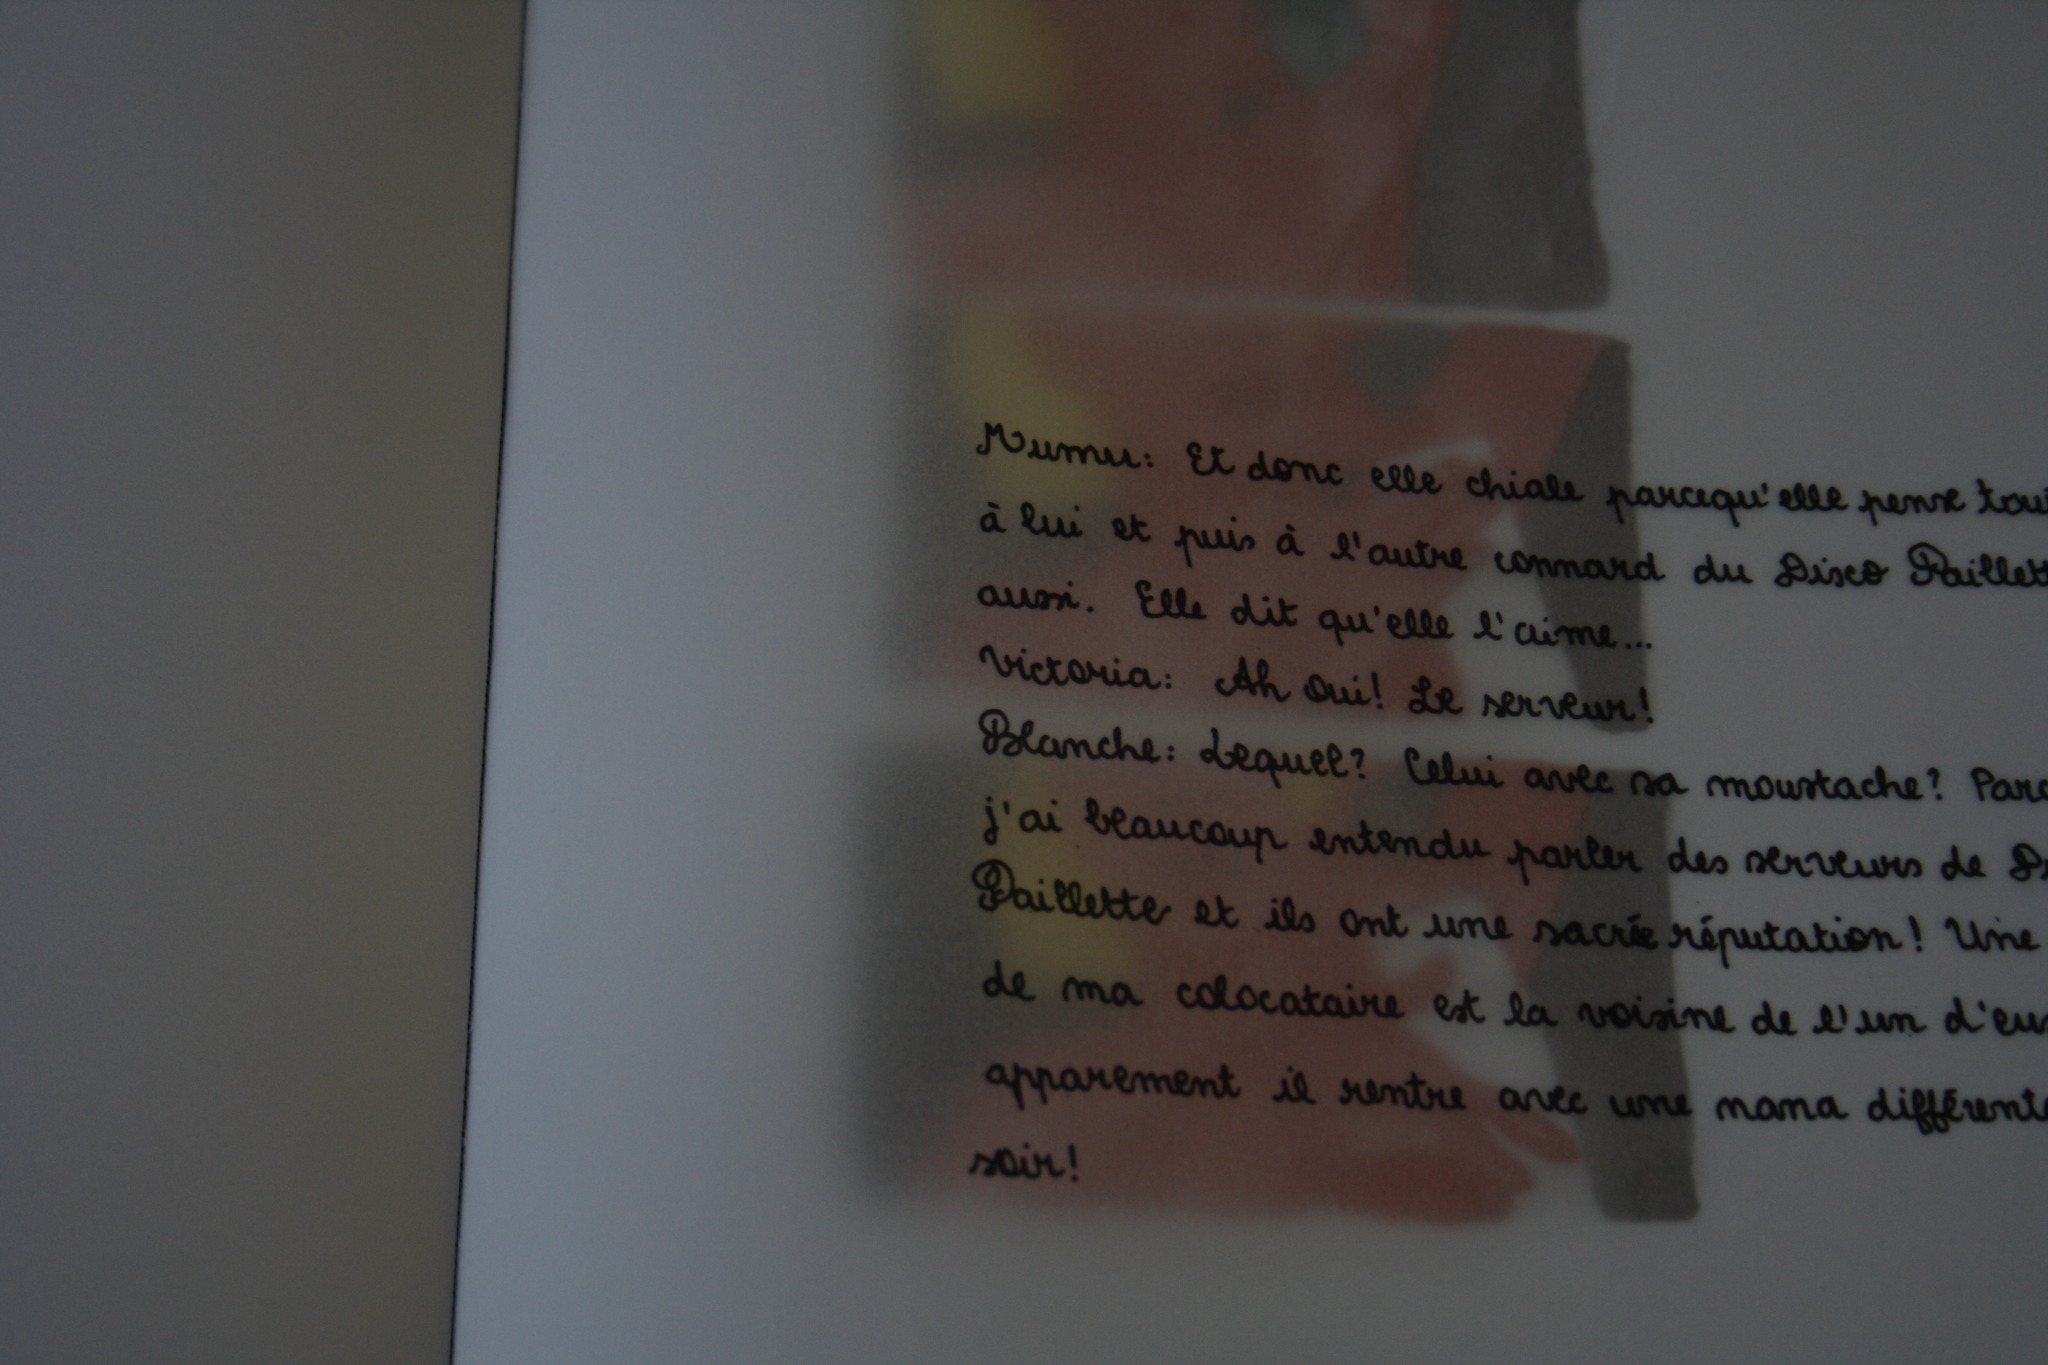 Mumu: Et donc elle chiale parcequ'elle pense
à lui et puis à l'autre connard du Disco
aussi. Elle dit qu'elle l'aime...
Victoria: Ah oui! Le serveur!
Blanche: Lequel? Celui avec sa moustache?
j'ai beaucoup entendu parler des serveurs de
Paillette et ils ont une sacrée réputation! Une
de ma colocataire est la voisine de l'un
apparement il rentre avec une nana
soir!